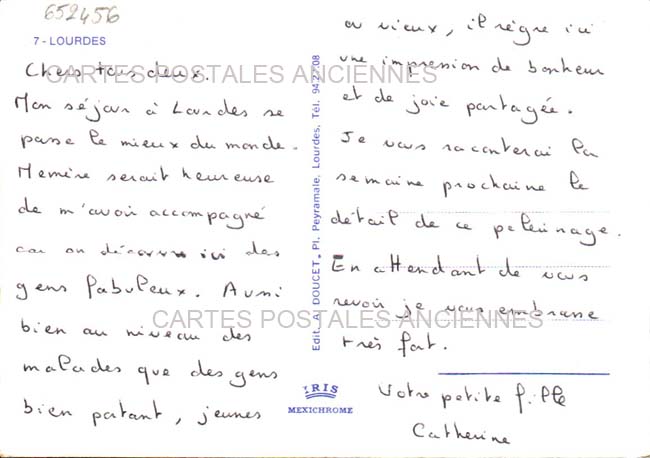 652456
7 - LOURDES
Chers tous deux.
Mon séjour à Lourdes se
passe le mieux du monde.
Mémère serait heureuse
de m'avoir accompagné
car on découvre ici des
gens fabuleux. Aussi
bien au niveau des
malades que des gens
bien portant, jeunes
ou vieux, il règne ici
une impression de bonheur
et de joie partagée.
Je vous raconterai la
semaine prochaine le
détail de ce pélerinage.
En attendant de vous
revoir je vous embrasse
très fort.
Votre petite fille
Catherine
Edit. A. DOUCET, Pl. Peyramale, Lourdes, Tél. 94.27.08
IRIS
MEXICHROME
CARTES POSTALES ANCIENNES
CARTES POSTALES ANCIENNES